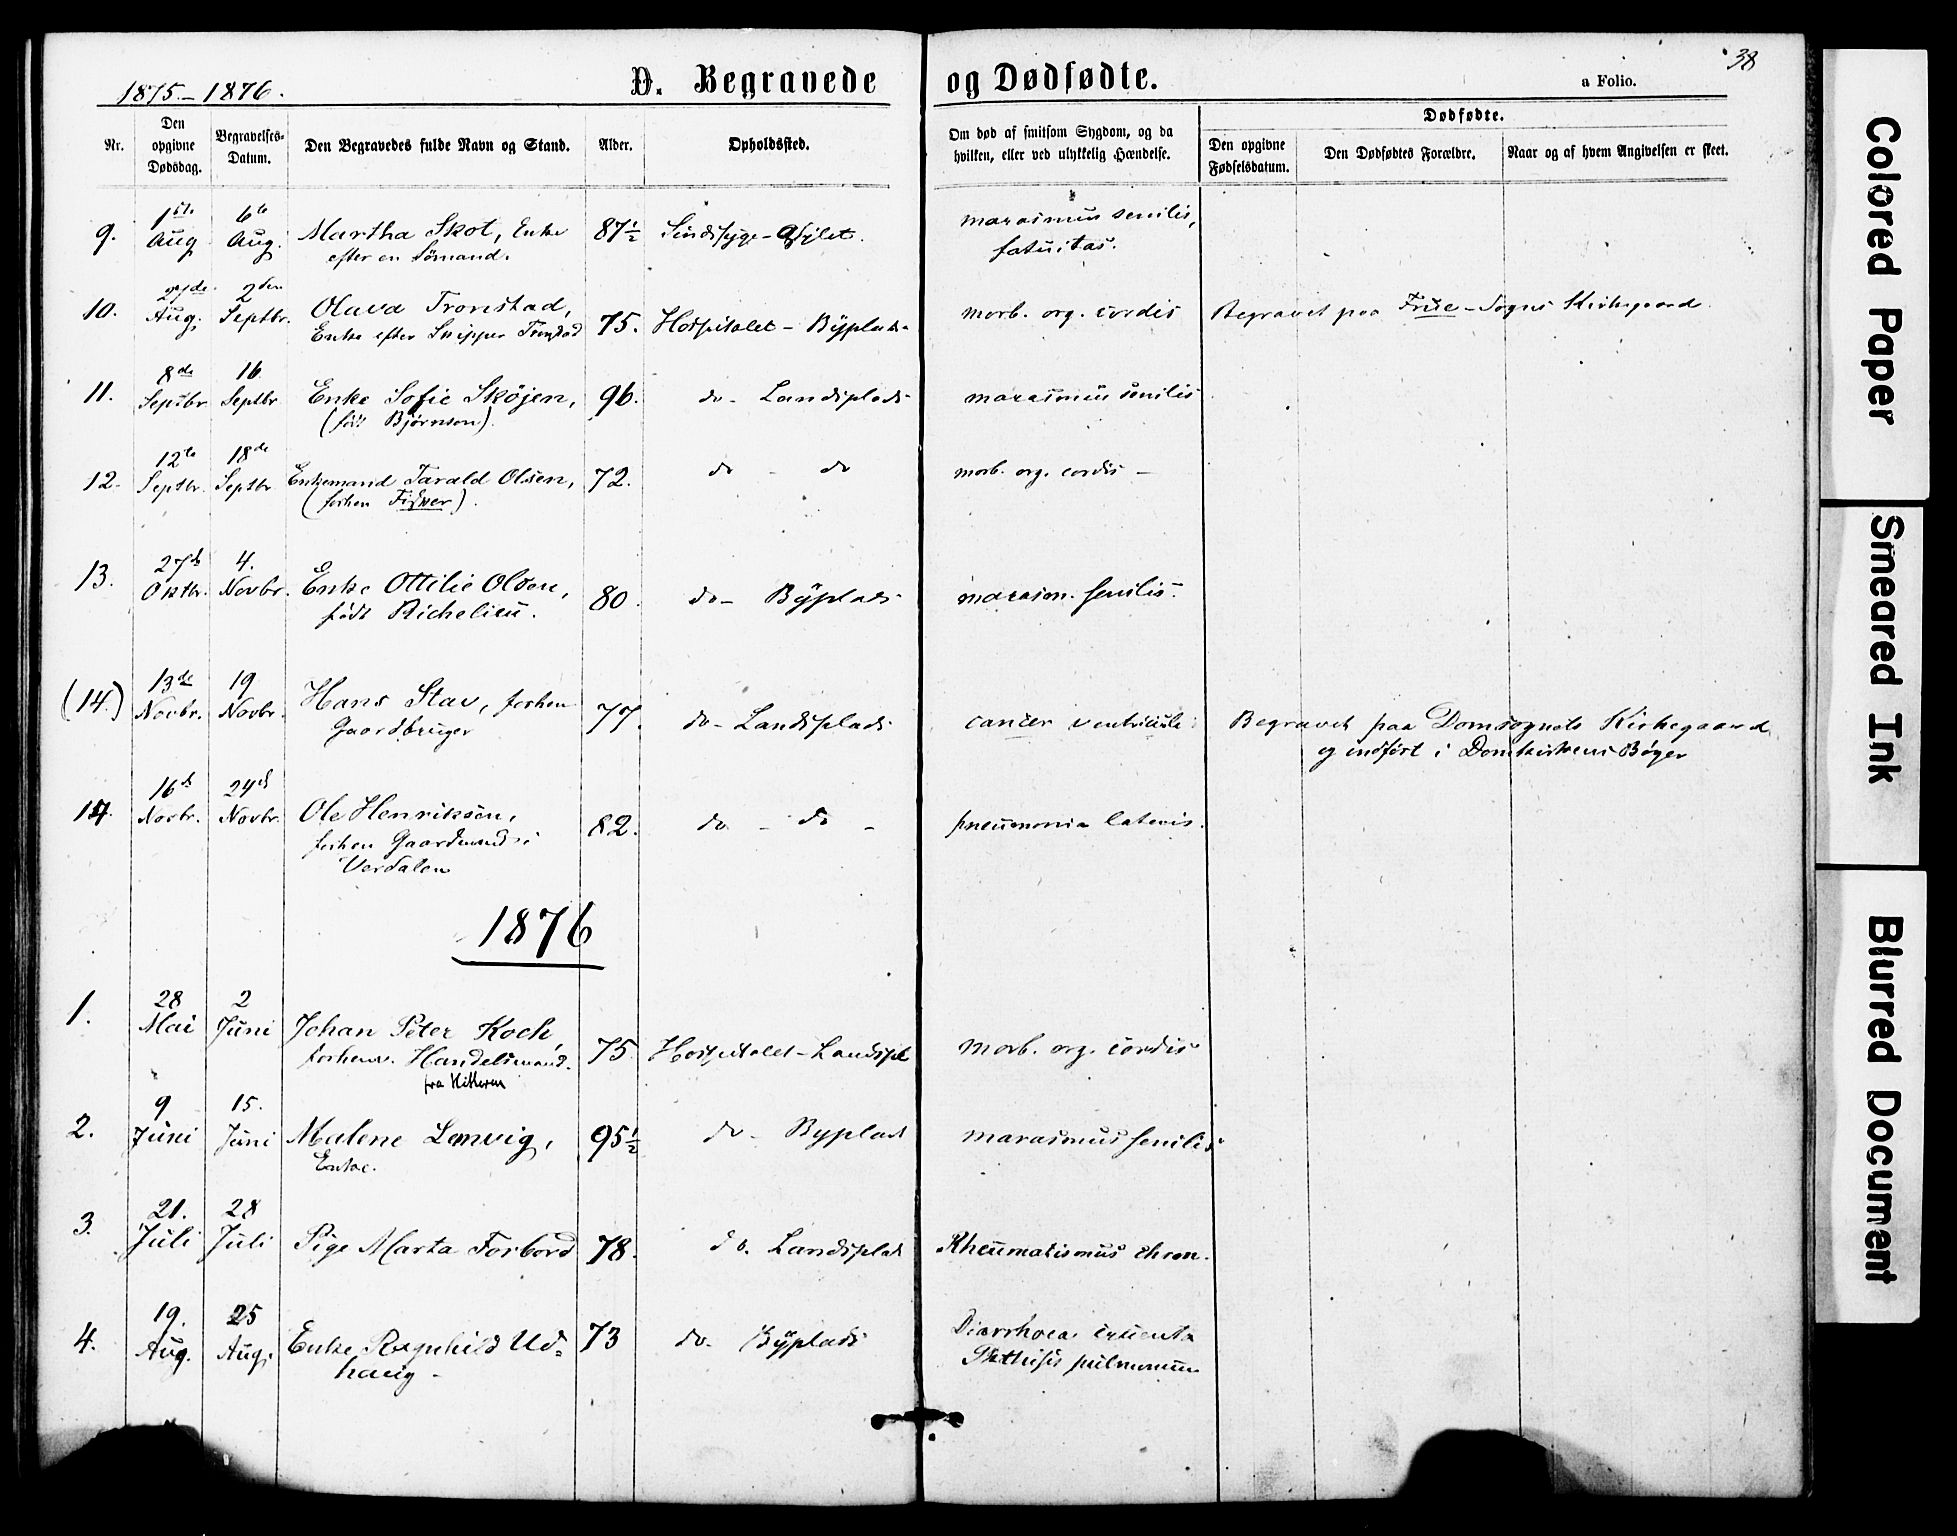 1875 – 1876.
D. Begravede og Dødfødte.
38
a Folio.
Nr.
Den opgivne Dødsdag.
Begravelses-Datum.
Den Begravedes fulde Navn og Stand.
Alder.
Opholdssted.
Om død af smitsom Sygdom, og da hvilken, eller ved ulykkelig Hændelse.
Dødfødte.
Den opgivne Fødselsdatum.
Den Dødfødtes Forældre.
Naar og af hvem Angivelsen er skeet.
9. 1ste Aug 6te Aug. Martha Skot, Enke 87½ Sindssyge-Asylet. marasmus senilis,
efter en Sømand. fatuitas.
10. 27de Aug. 2den Septbr. Olava Tronstad, 75. Hospitalet – Byplads morb. org. cordis Begravet paa Frue-Sogns Kirkegaard
Enke efter Skipper Tronstad
11. 8de Septbr 16 Septbr Enke Sofie Skøjen, 96. do – Landsplads marasmus senilis
(født Bjørnson).
12. 12te Septbr. 18de Septbr Enkemand Tarald Olsen, 72. do – do morb. org. cordis –
(forhen Fisker).
13. 27de Oktbr. 4. Novbr. Enke Ottilie Olsen, 80. do – Byplads marasm. senilis.
født Richelieu.
(14.) 13de Novbr. 19 Novbr. Hans Stav, forhen 77. do – Landsplads cancer ventriculi Begravet paa Domsognets Kirkegaard
Gaardbruger og indført i Domkirkens Bøger
14. 16de Novbr. 24de Novbr. Ole Henriksen, 82. do – do – pneumonia
forhen Gaardmand i
Verdalen
1876
1. 28 Mai 2 Juni Johan Peter Koch, 75. Hospitalet – Landspl morb. org. cordis
forhenv. Handelsmand.
fra Hitteren
2. 9 Juni 15. Juni Malene Lemvig, 95½ do – Byplads marasmus senilis
Enke.
3. 21. Juli 28 Juli Pige Marta Forbord 78. do. Landsplads Rheumatismus chron.
4. 19. Aug. 25 Aug. Enke Ragnhild Ud= 73 do. Byplads Diarrhoea cruenta
haug – Phthisis pulmonum
Colored Paper
Smeared Ink
Blurred Document